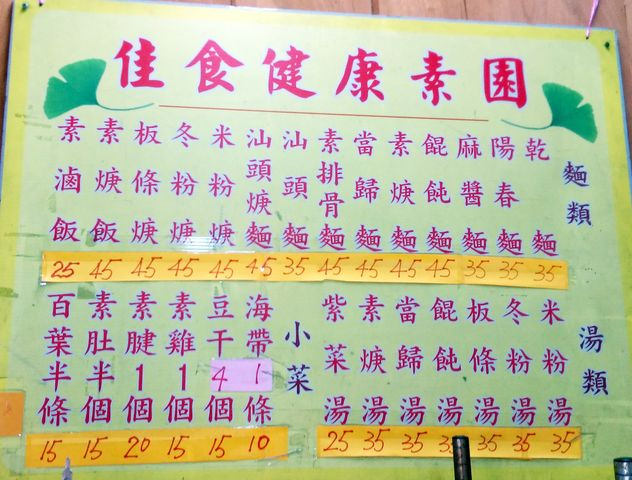 佳食健康素園
麵類
乾麵 35
陽春麵 35
麻醬麵 35
餛飩麵 45
素焿麵 45
當歸麵 45
素排骨麵 45
汕頭麵 35
汕頭焿麵 45
米粉焿 45
冬粉焿 45
板條焿 45
素焿飯 45
素滷飯 25
湯類
米粉湯 35
冬粉湯 35
板條湯 35
餛飩湯 35
當歸湯 35
素焿湯 35
紫菜湯 25
小菜
海帶1條 10
豆干4個 15
素雞1個 15
素腱1個 20
素肚半個 15
百葉半條 15